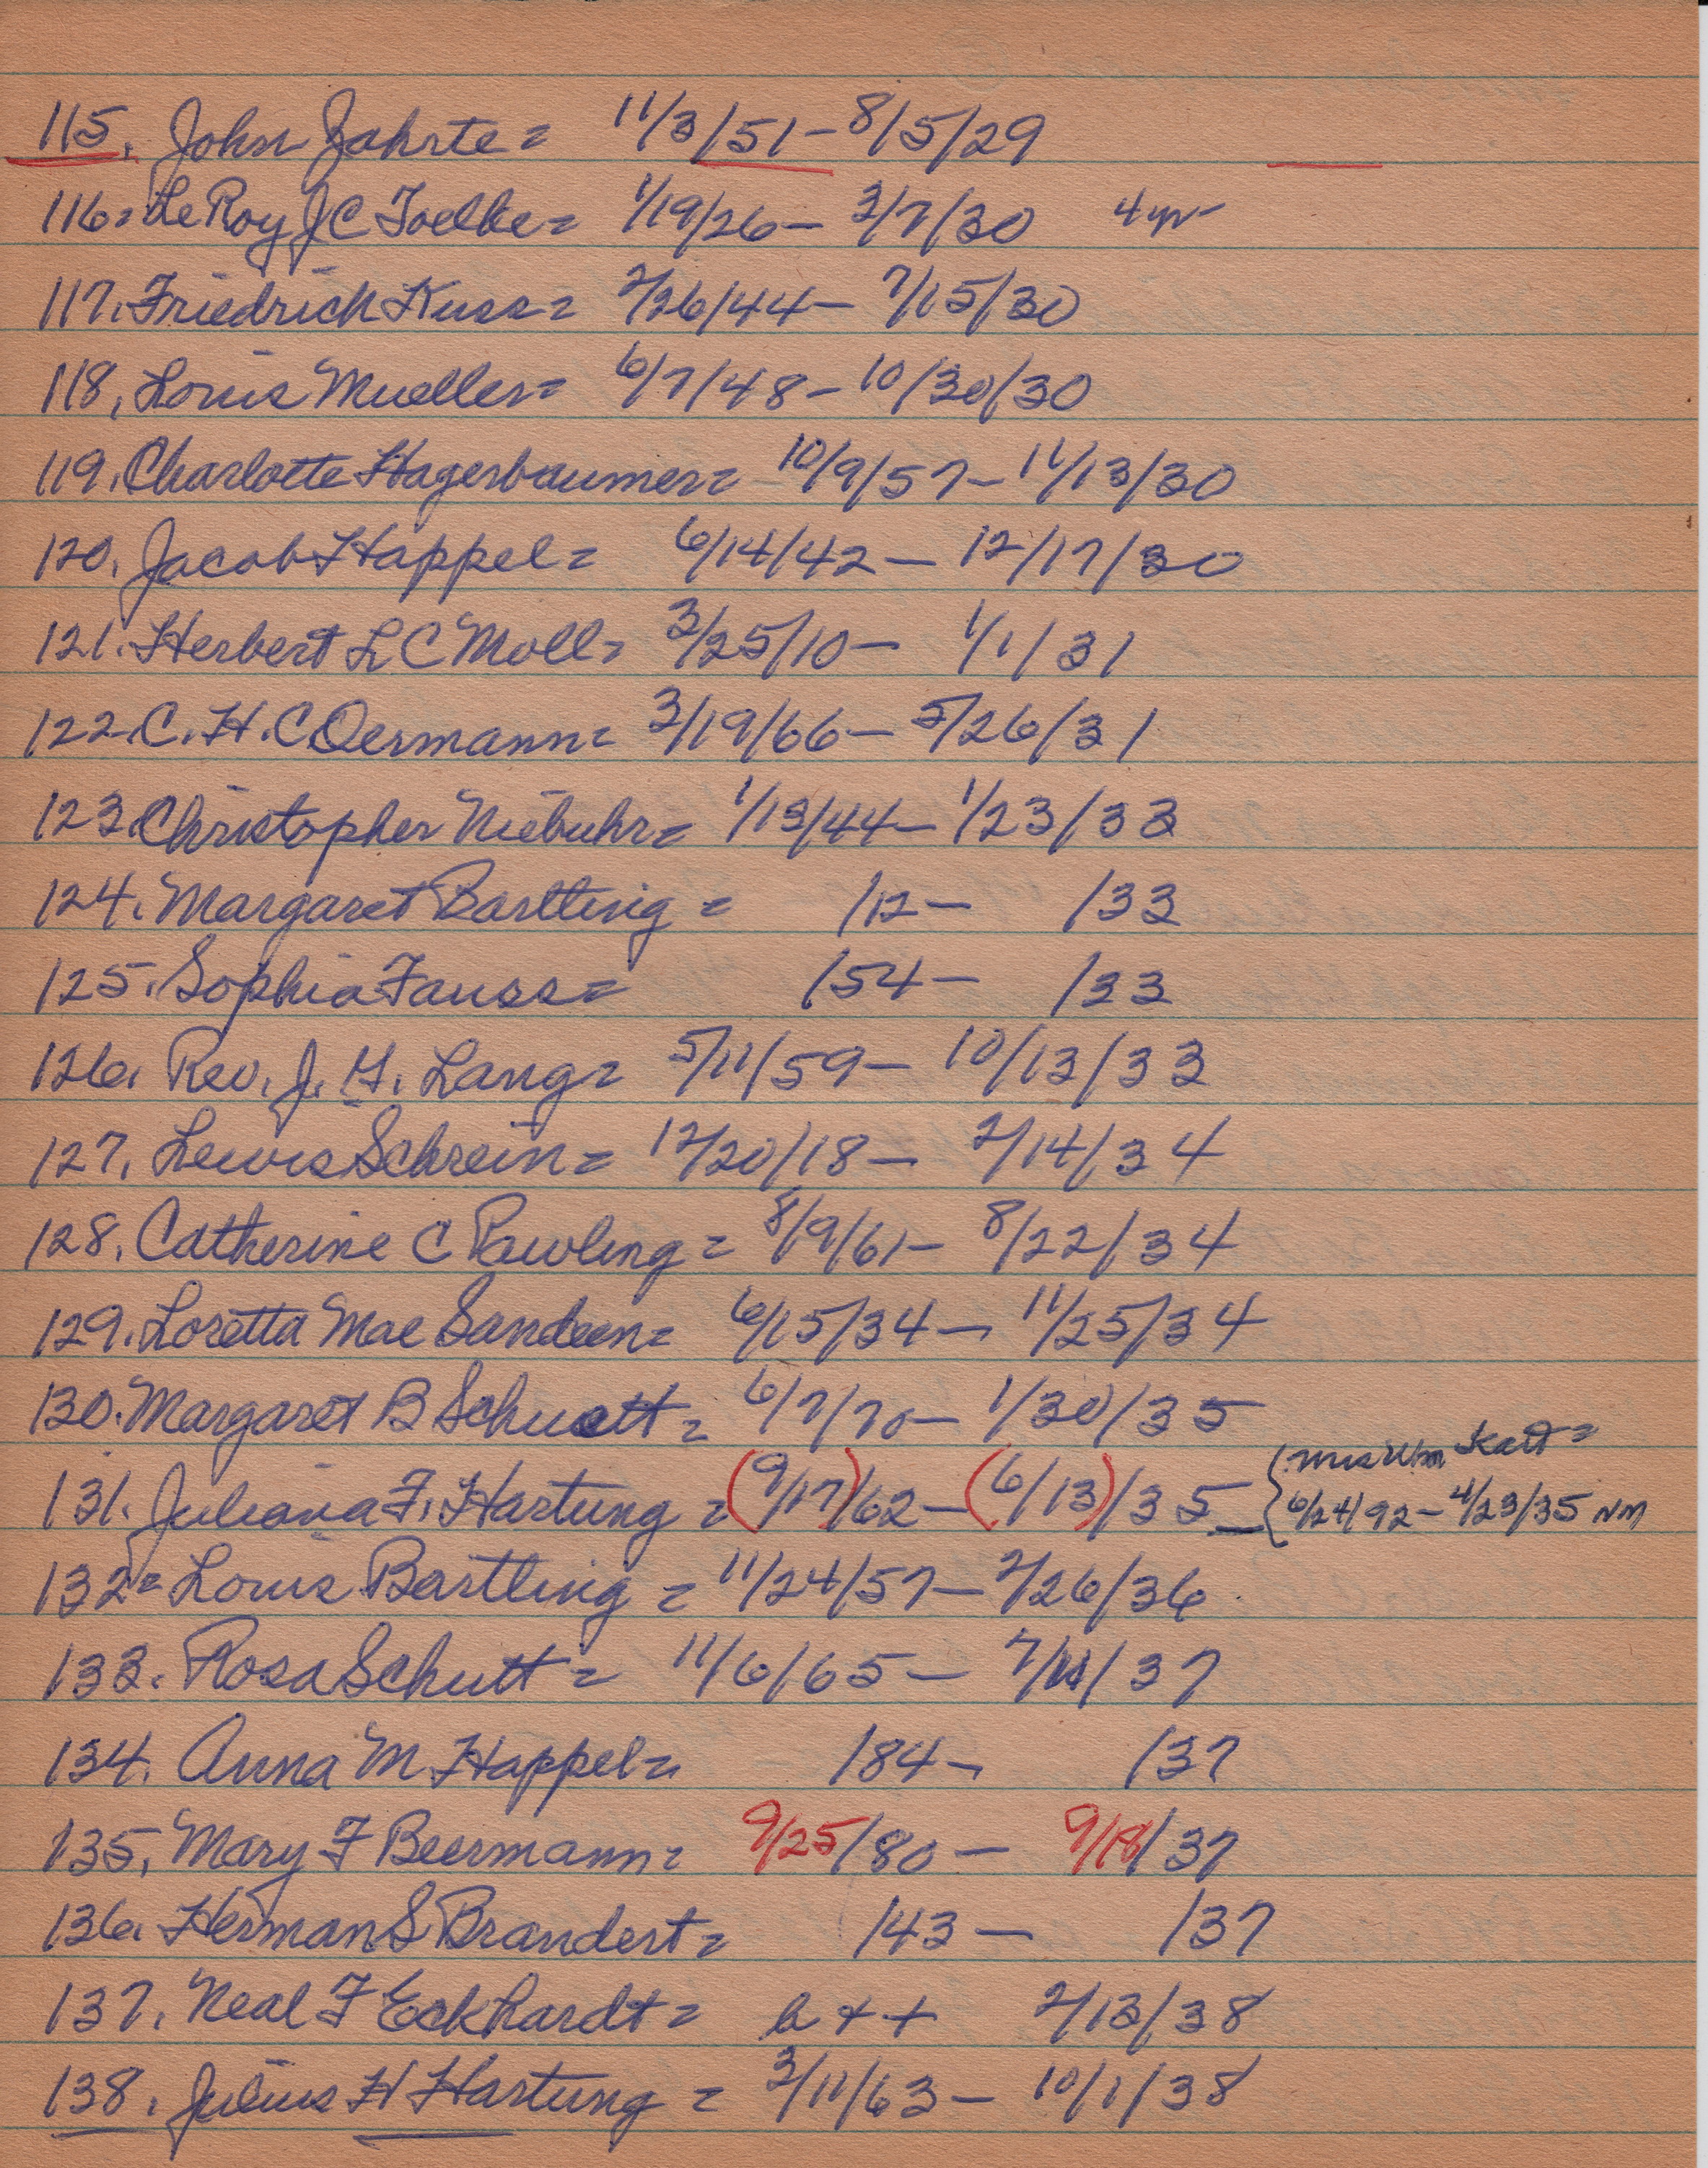 115. John Zahrte = 11/3/51 - 8/5/29
116 = LeRoy J C Toelke = 1/19/26 - 3/7/30 4 yr
117. Friedrich Kuss = 2/26/44 - 7/15/30
118. Louis Mueller = 6/7/48 - 10/30/30
119. Charlotte Hagerbaumer = 10/9/57 - 11/13/30
120. Jacob Happel = 6/14/42 - 12/17/30
121. Herbert L C Moll = 3/25/10 - 1/1/31
122. C. H. C Oermann = 3/19/66 - 5/26/31
123. Christopher Niebuhr = 1/13/44 - 1/23/33
124. Margaret Bartling = /12 - /33
125. Sophia Fauss = /54 - /33
126. Rev. J. G. Lang = 5/11/59 - 10/13/33
127. Lewis Schrein = 12/20/18 - 2/14/34
128. Catherine C Rowling = 8/9/61 - 8/22/34
129. Loretta Mae Sandeen = 6/15/34 - 11/25/34
130. Margaret B Schuett = 6/7/70 - 1/30/35
131. Juliana F. Hartung = (9/17)/62 - (6/13)/35 - { Mrs Wm Kaat =
6/24/92 - 4/23/35 NM
132 = Louis Bartling = 11/24/57 - 2/26/36
133. Rosa Schutt = 11/6/65 - 7/11/37
134. Anna M Happel = /84 - /37
135. Mary F Beermann = 9/25/80 - 9/18/37
136. Herman S Brandert = /43 - /37
137. Neal F Eckhardt = b + + 2/13/38
138. Julius H Hartung = 3/11/63 - 10/1/38